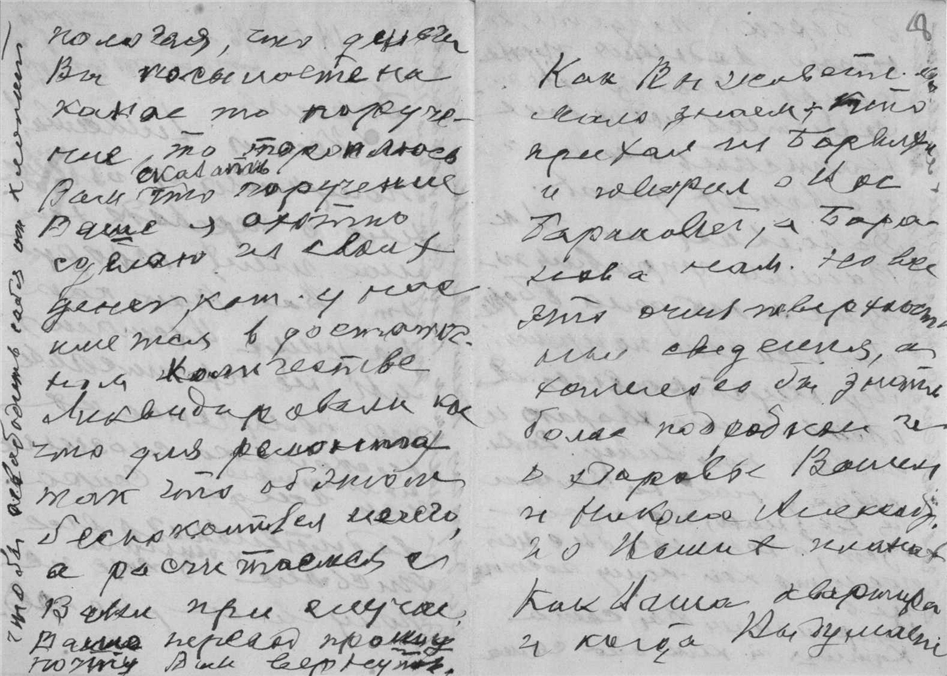 полагая, что деньги
Вы посылаете на
какое то поруче-
ние, то тороплюсь
сказать
Вам что поручение
Ваше я охотно
сделаю из своих
денег, кот. у нас
имеются в достаточ-
ном количестве
Ликвидировали кое
что для ремонта
так что об этом
беспокоиться нечего,
а расчитаемся с
Вами при случае.
Ваш перевод прошу
почту Вам вернуть.
чтобы освободить себя от хлопот
8
Как Вы живете мы
мало знаем, кто
приехал из
и говорил о Вас
а Бара-
нова нам. Но все
это очень поверхност-
ные сведения, а
хотелось бы знать
более подробно
о здоровье Вашем
и Никола
и о Ваших планах
Как Ваша квартира
и когда Вы думаете